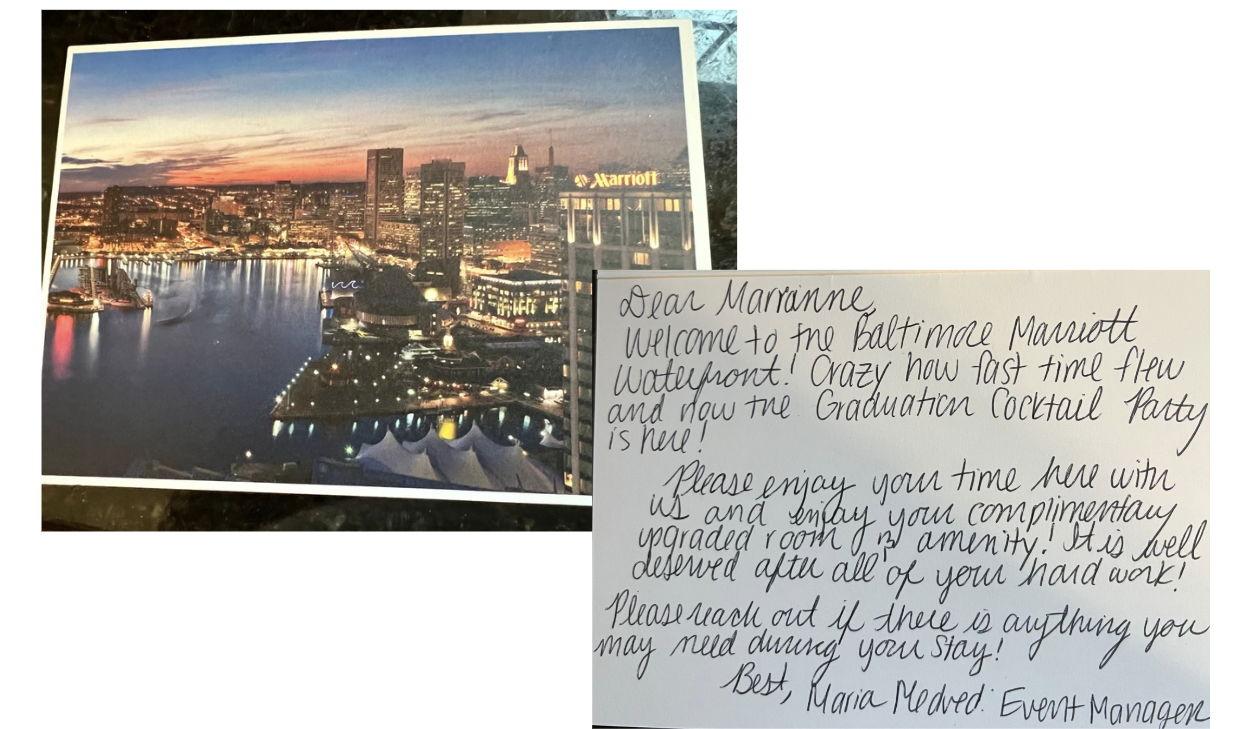 Marriott
Dear Marianne,
Welcome to the Baltimore Marriott
Waterfront! Crazy how fast time flew
and now the Graduation Cocktail Party
is here!
Please enjoy your time here with
us and enjoy your complimentary
upgraded room & amenity! It is well
deserved after all of your hard work!
Please reach out if there is anything you
may need during your stay!
Best, Maria Medved: Event Manager